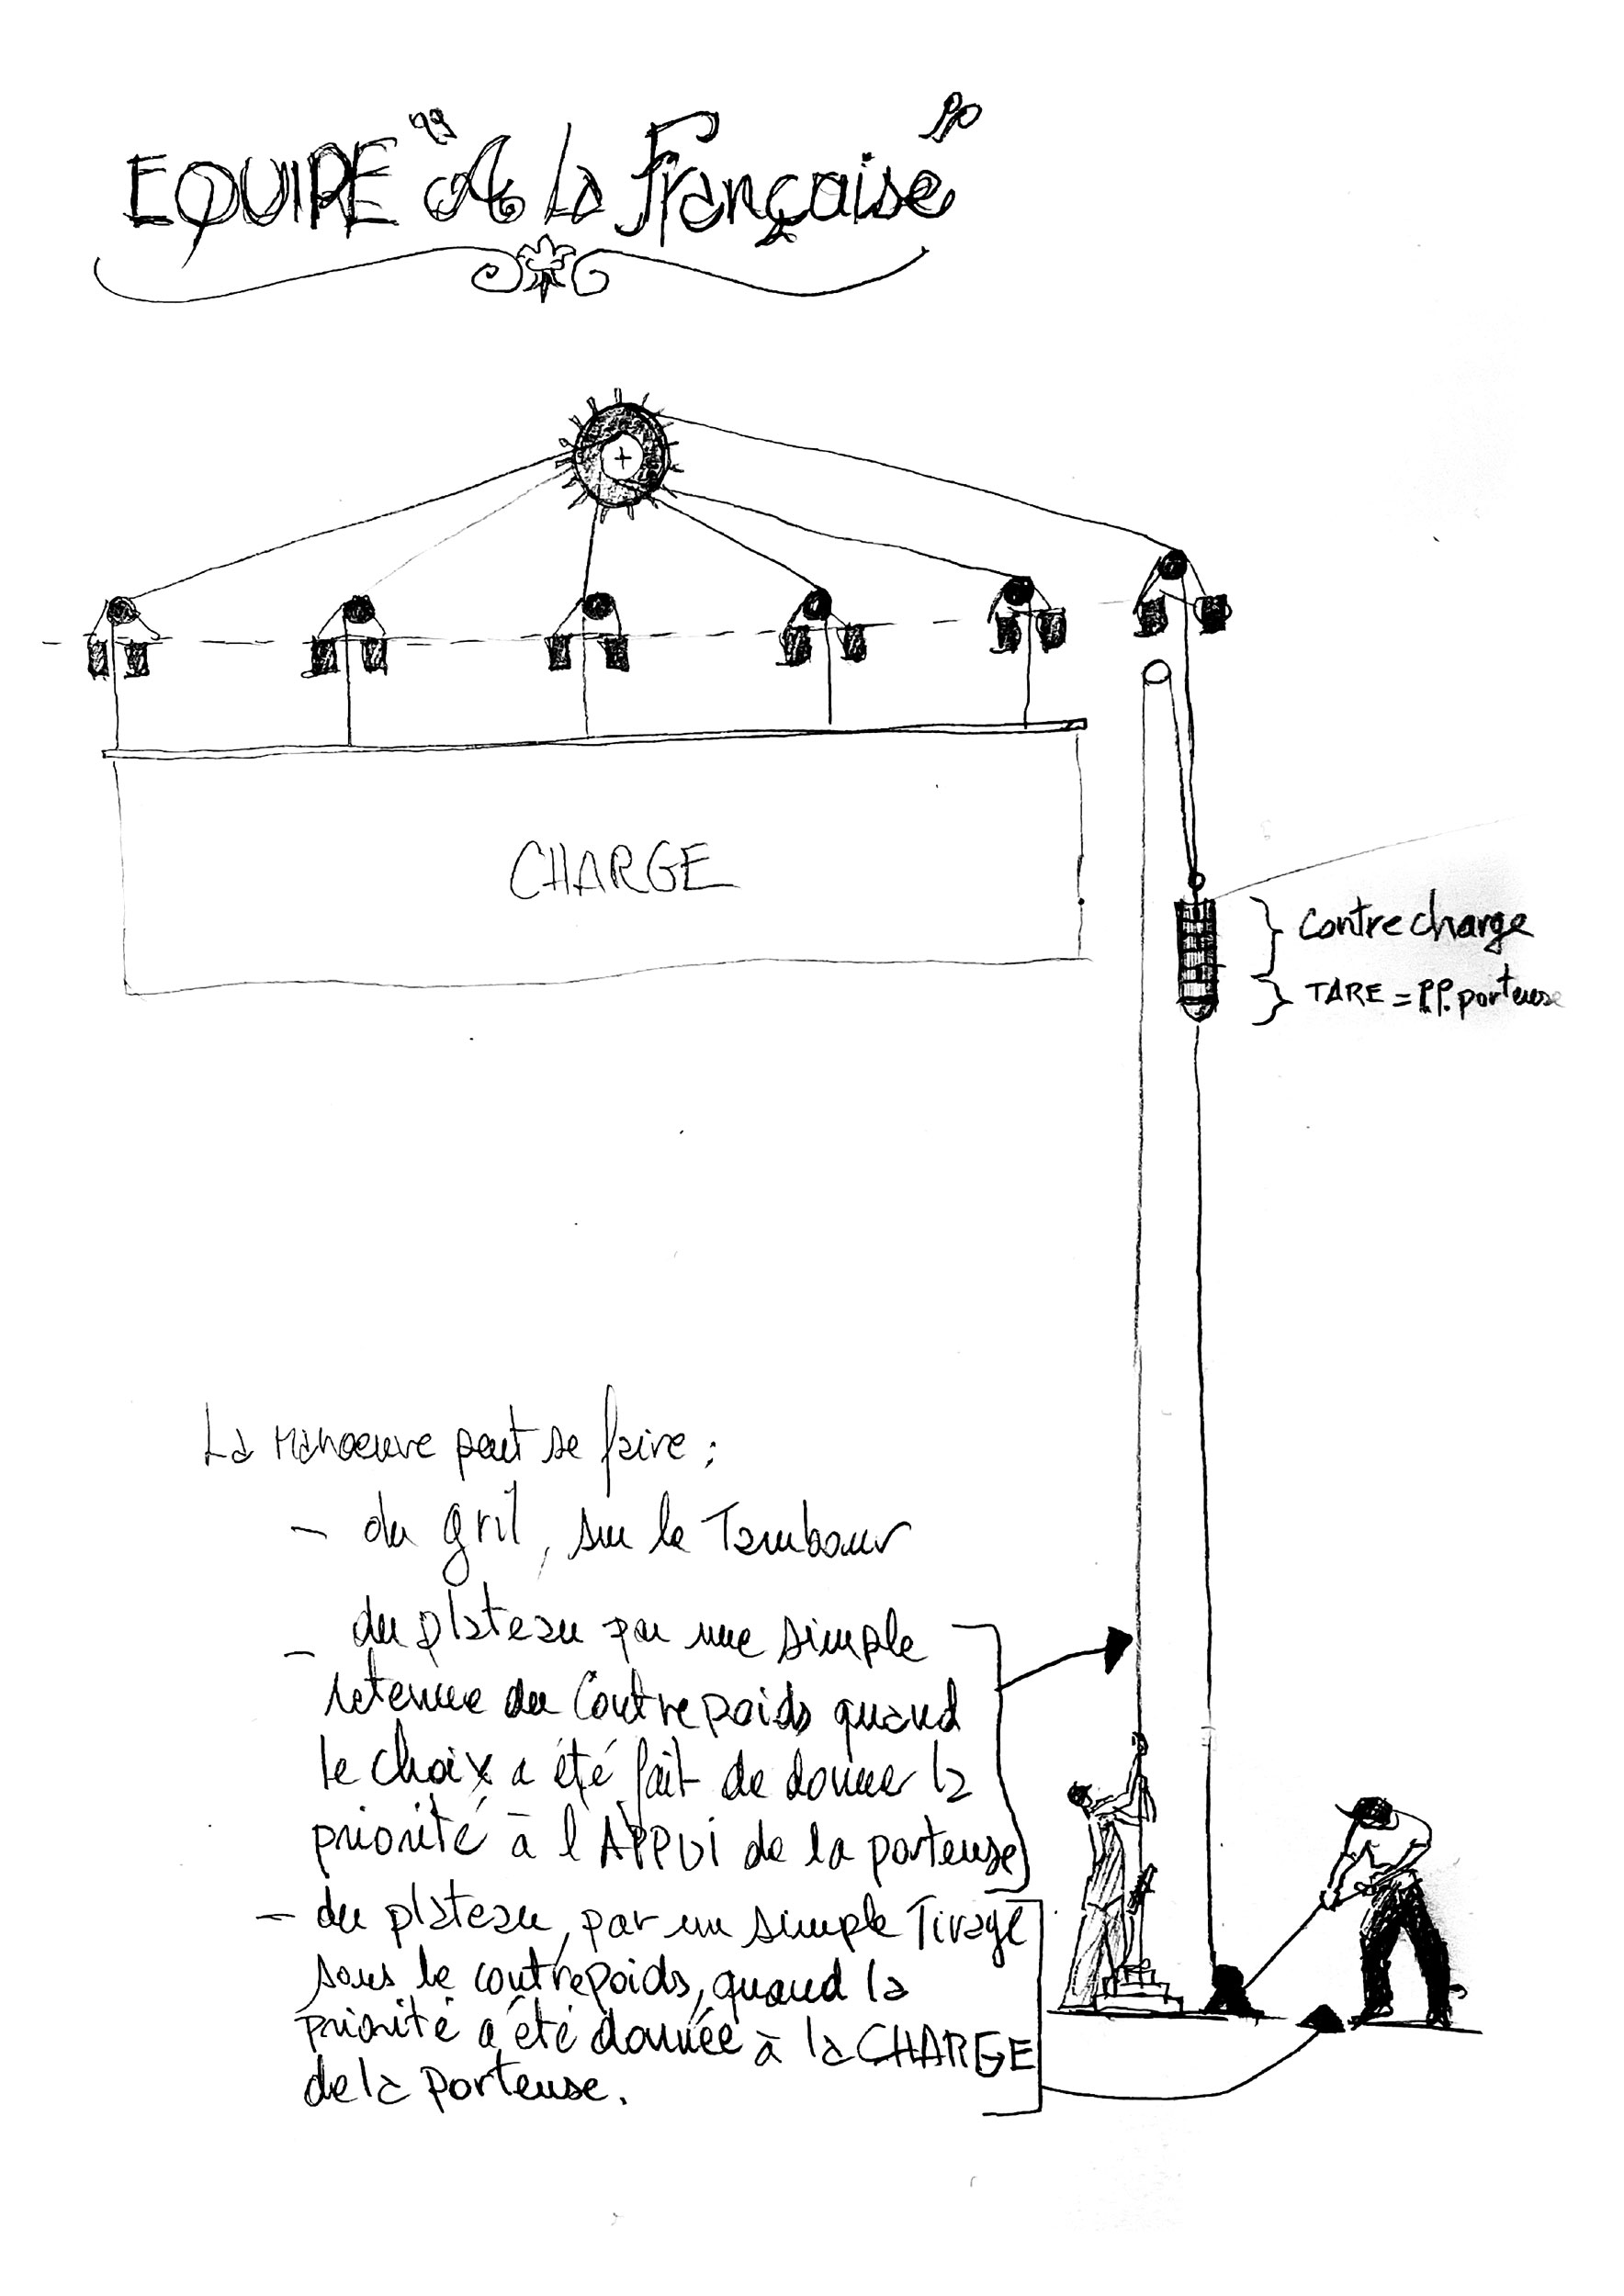 EQUIPE "A la Française"
CHARGE
Contrecharge
TARE = P.P. porteuse
La Manoeuvre peut se faire :
- du gril, sur le Tambour
- du plateau par une simple
retenue du Contrepoids quand
le choix a été fait de donner la
priorité à l'APPUI de la porteuse
- du plateau, par un simple Tirage
sous le contrepoids, quand la
priorité a été donnée à la CHARGE
de la porteuse.